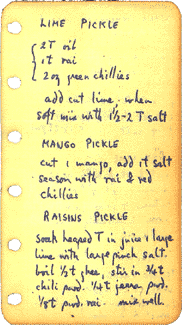 LIME PICKLE
2T oil
1t rai
2oz green chillies
add cut lime. when
soft mix with 1½-2T salt
MANGO PICKLE
cut 1 mango, add 1t salt
season with rai & red
chillies
RAISINS PICKLE
soak heaped T in juice 1 large
lime with large pinch salt.
boil ½t ghee, stir in ¾t
chili pwd. ¼t jeera pwd.
⅛t pwd. rai. mix well